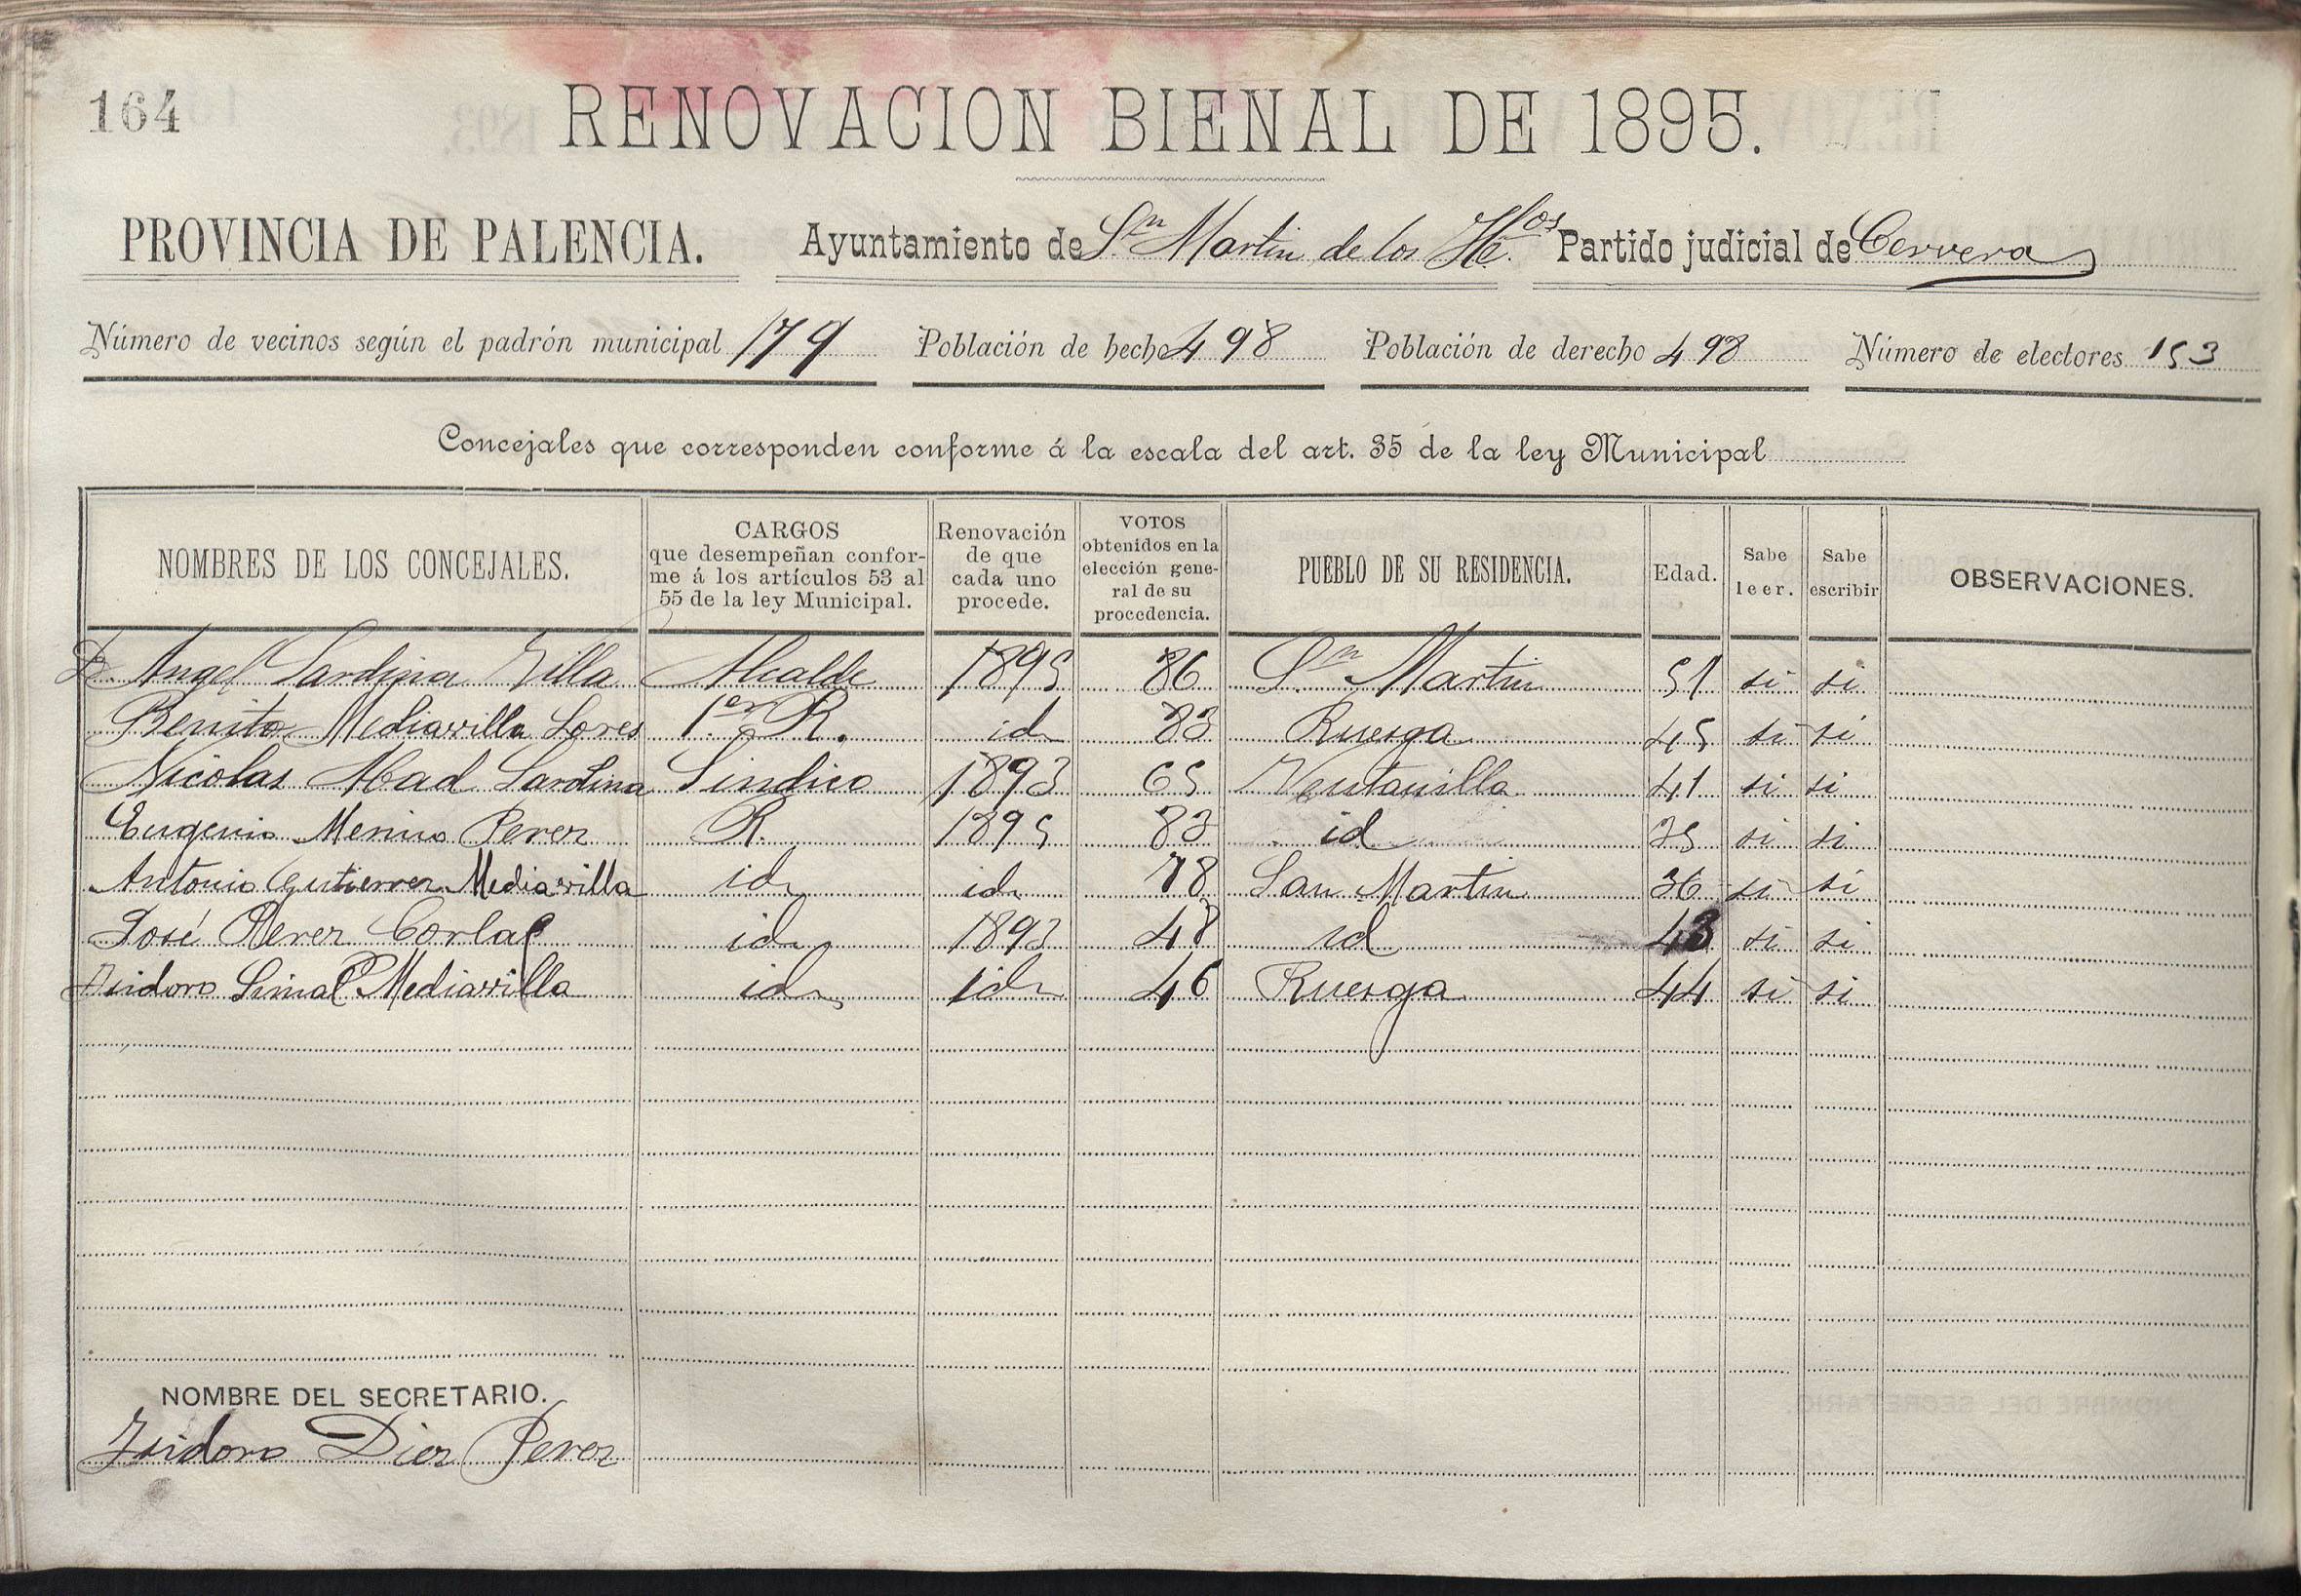 164
RENOVACION BIENAL DE 1895.
PROVINCIA DE PALENCIA. Ayuntamiento de Sn Martin de los Hos. Partido judicial de Cervera
Número de vecinos según el padrón municipal 179 Población de hecho 498 Población de derecho 498 Número de electores 153
Concejales que corresponden conforme á la escala del art. 35 de la ley Municipal
NOMBRES DE LOS CONCEJALES. CARGOS que desempeñan conforme á los artículos 53 al 55 de la ley Municipal. Renovación de que cada uno procede. VOTOS obtenidos en la elección general de su procedencia. PUEBLO DE SU RESIDENCIA. Edad. Sabe leer. Sabe escribir OBSERVACIONES.
D. Angel Sardina Villa Alcalde 1895 86 Sn Martin 51 si si
Benito Mediavilla Lores 1.er R. id 83 Ruesga 45 si si
Nicolas Abad Sardina Sindico 1893 65 Ventanilla 41 si si
Eugenio Merino Perez R. 1895 83 id 35 si si
Antonio Gutierrez Mediavilla id id 78 San Martin 36 si si
José Perez id 1893 48 id 43 si si
Isidoro Simal Mediavilla id id 46 Ruesga 44 si si
NOMBRE DEL SECRETARIO.
Isidoro Diez Perez